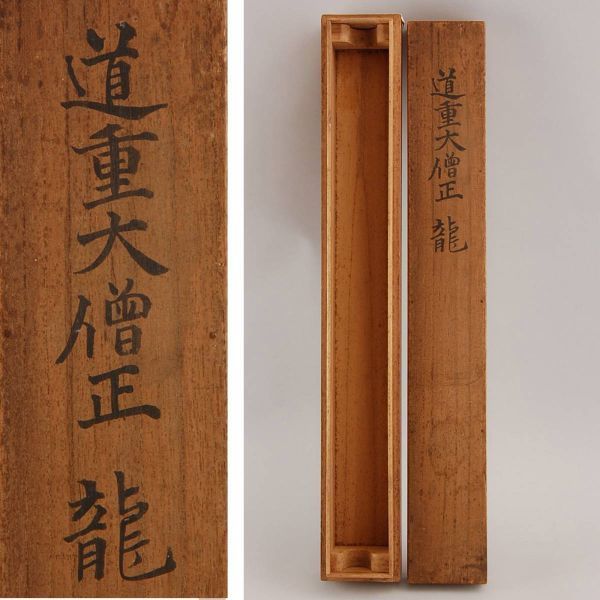 道重大僧正 龍
道重大僧正 龍